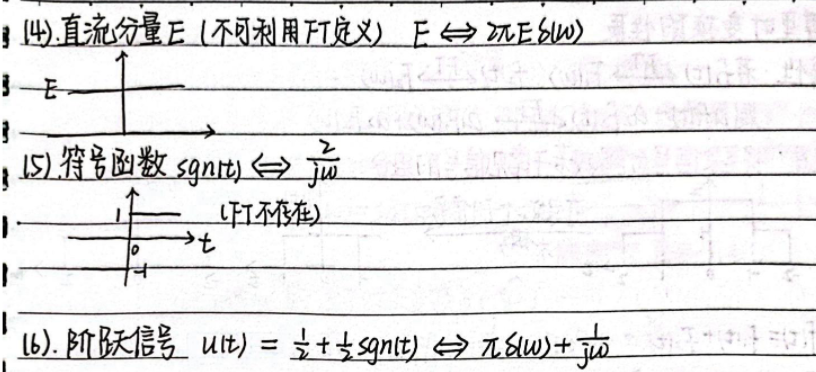 (4).直流分量E (不可利用FT定义) E ⇔ 2πEδ(ω)
E
(5).符号函数 sgn(t) ⇔ 2/jω
1 (FT不存在)
0 t
-1
(6).阶跃信号 u(t) = 1/2 + 1/2 sgn(t) ⇔ πδ(ω) + 1/jω